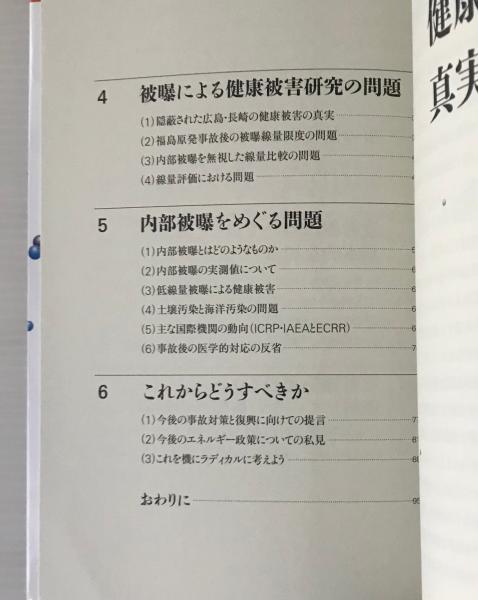 4 被曝による健康被害研究の問題
(1)隠蔽された広島・長崎の健康被害の真実
(2)福島原発事故後の被曝線量限度の問題
(3)内部被曝を無視した線量比較の問題
(4)線量評価における問題
5 内部被曝をめぐる問題
(1)内部被曝とはどのようなものか
(2)内部被曝の実測値について
(3)低線量被曝による健康被害
(4)土壌汚染と海洋汚染の問題
(5)主な国際機関の動向(ICRP・IAEAとECRR)
(6)事故後の医学的対応の反省
6 これからどうすべきか
(1)今後の事故対策と復興に向けての提言
(2)今後のエネルギー政策についての私見
(3)これを機にラディカルに考えよう
おわりに 95
健康
真実